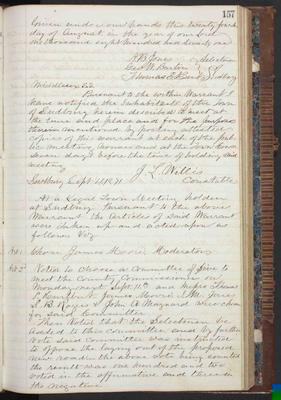 157
Given under our hands this twenty fourth
day of August in the year of our Lord
one thousand eight hundred and seventy one
Selectmen
of
Sudbury
Middlesex SS.
Pursuant to the within Warrant I
have notified the Inhabitants of the town
of Sudbury herein described to meet at
the time and place and for the purpose
therein mentioned by posting attested
copies of this warrant at each of the pub-
lic meeting houses and at the Town House
seven days before the time of holding said
meeting
J. L. Willis
Sudbury Sept 4, 1871 Constable
At a Legal Town Meeting holden
at Sudbury Pursuant to the above
Warrant the Articles of said Warrant
were taken up and acted upon as
follows Viz
Art 1 Chose James Moore Moderator
Art 2 Voted to choose a Committee of five to
meet the County Commissioners on
Monday next Sept 11th and Messrs Thomas
James Moore
S. B. Rogers & John A. Maynard were chosen
for said Committee
Then Voted that the Selectmen be
added to this Committee and by further
vote said Committee was instructed
to oppose the laying out of the proposed
new road on the above vote being counted
the result was one hundred and two
voted in the affirmative and three in
the negative